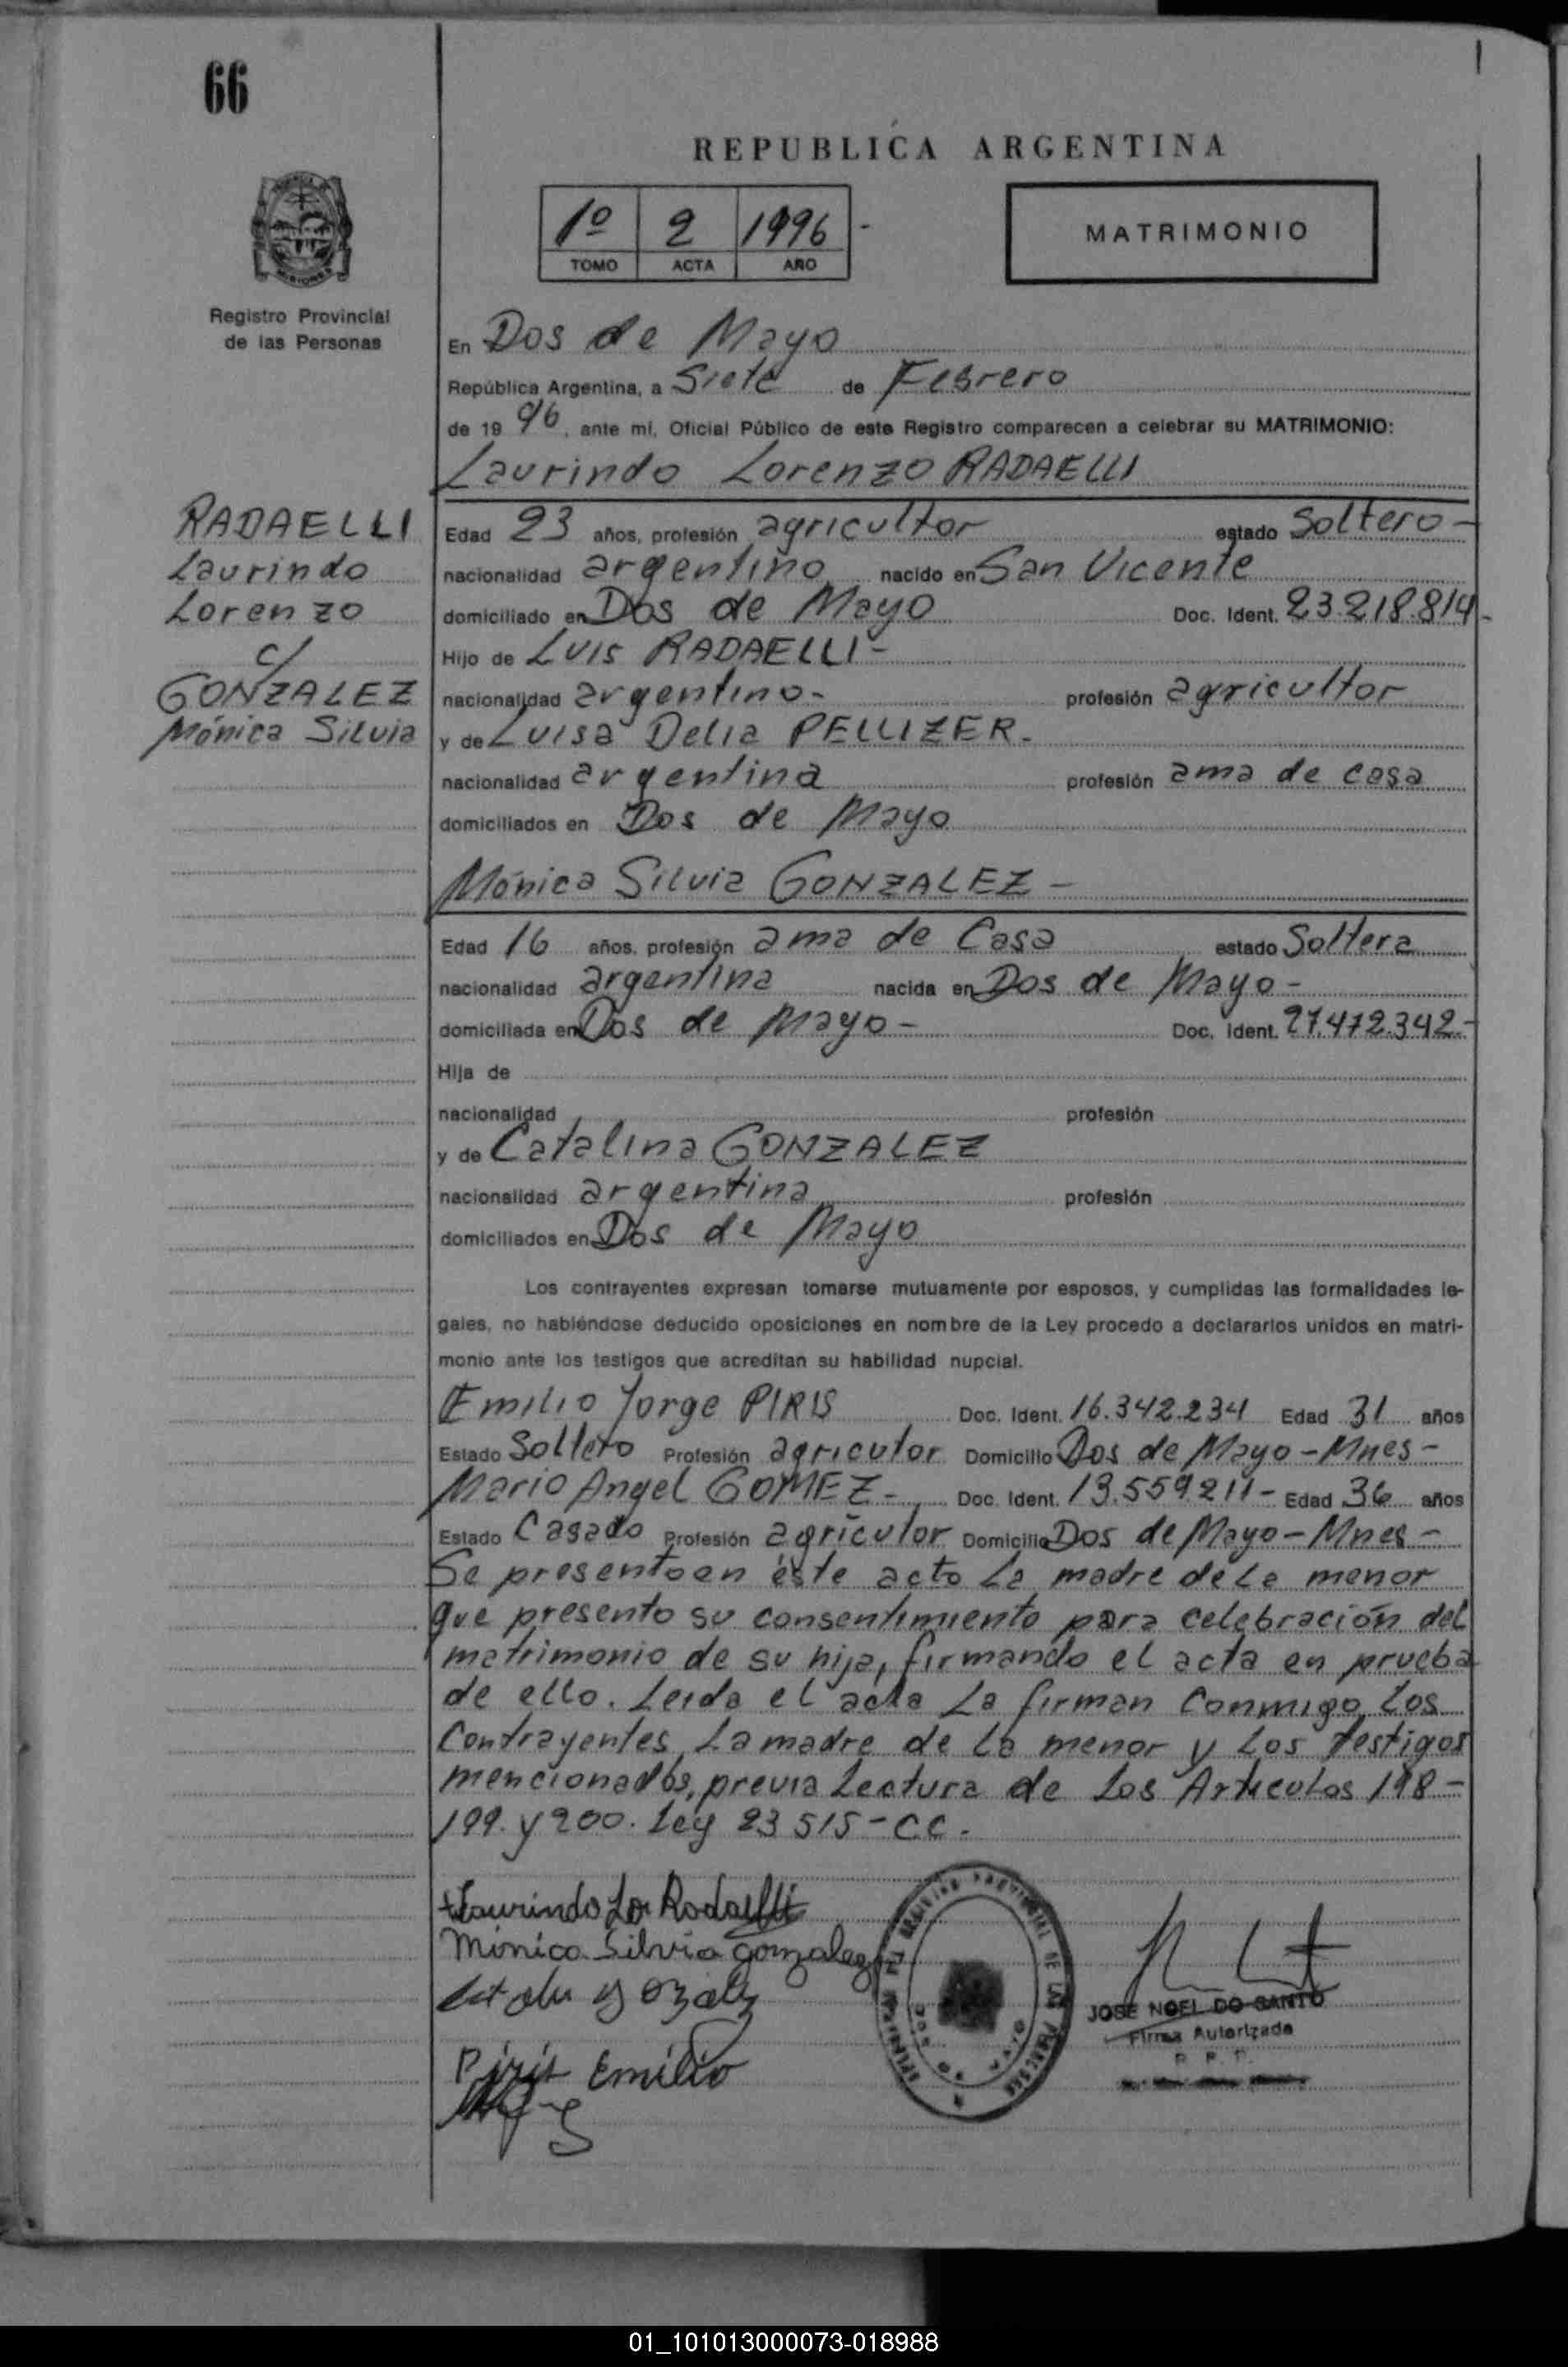 66
REPUBLICA ARGENTINA
1º 2 1996 -
TOMO ACTA AÑO
MATRIMONIO
MISIONES
Registro Provincial
de las Personas
En Dos de Mayo
República Argentina, a Siete de Febrero
de 19 96, ante mí, Oficial Público de este Registro comparecen a celebrar su MATRIMONIO:
Laurindo Lorenzo RADAELLI
RADAELLI
Laurindo
Lorenzo
c/
GONZALEZ
Mónica Silvia
Edad 23 años, profesión agricultor estado Soltero -
nacionalidad argentino nacido en San Vicente
domiciliado en Dos de Mayo Doc. Ident. 23.218.814 -
Hijo de Luis RADAELLI -
nacionalidad argentino - profesión agricultor
y de Luisa Delia PELLIZER -
nacionalidad argentina profesión ama de casa
domiciliados en Dos de Mayo
Mónica Silvia GONZALEZ -
Edad 16 años, profesión ama de Casa estado Soltera
nacionalidad argentina nacida en Dos de Mayo -
domiciliada en Dos de Mayo - Doc. Ident. 27.472.342 -
Hija de
nacionalidad profesión
y de Catalina GONZALEZ
nacionalidad argentina profesión
domiciliados en Dos de Mayo
Los contrayentes expresan tomarse mutuamente por esposos, y cumplidas las formalidades le-
gales, no habiéndose deducido oposiciones en nombre de la Ley procedo a declararlos unidos en matri-
monio ante los testigos que acreditan su habilidad nupcial.
Emilio Jorge PIRIS Doc. Ident. 16.342.234 Edad 31 años
Estado Soltero Profesión agricutor Domicilio Dos de Mayo - Mnes -
Mario Angel GOMEZ - Doc. Ident. 13.559.211 - Edad 36 años
Estado Casado Profesión agricutor Domicilio Dos de Mayo - Mnes -
Se presento en éste acto La madre de La menor
que presento su consentimiento para celebración del
matrimonio de su hija, firmando el acta en prueba
de ello. Leida el acta La firman Conmigo Los
Contrayentes, La madre de La menor y Los testigos
mencionados, previa Lectura de Los Articulos 198 -
199. y 200. Ley 23 515 - CC.
Laurindo Lo Radaelli
Monica Silvia gonzalez
Piris Emilio
JOSE NOEL DO SANTO
Firma Autorizada
R. P. P.
01_101013000073-018988